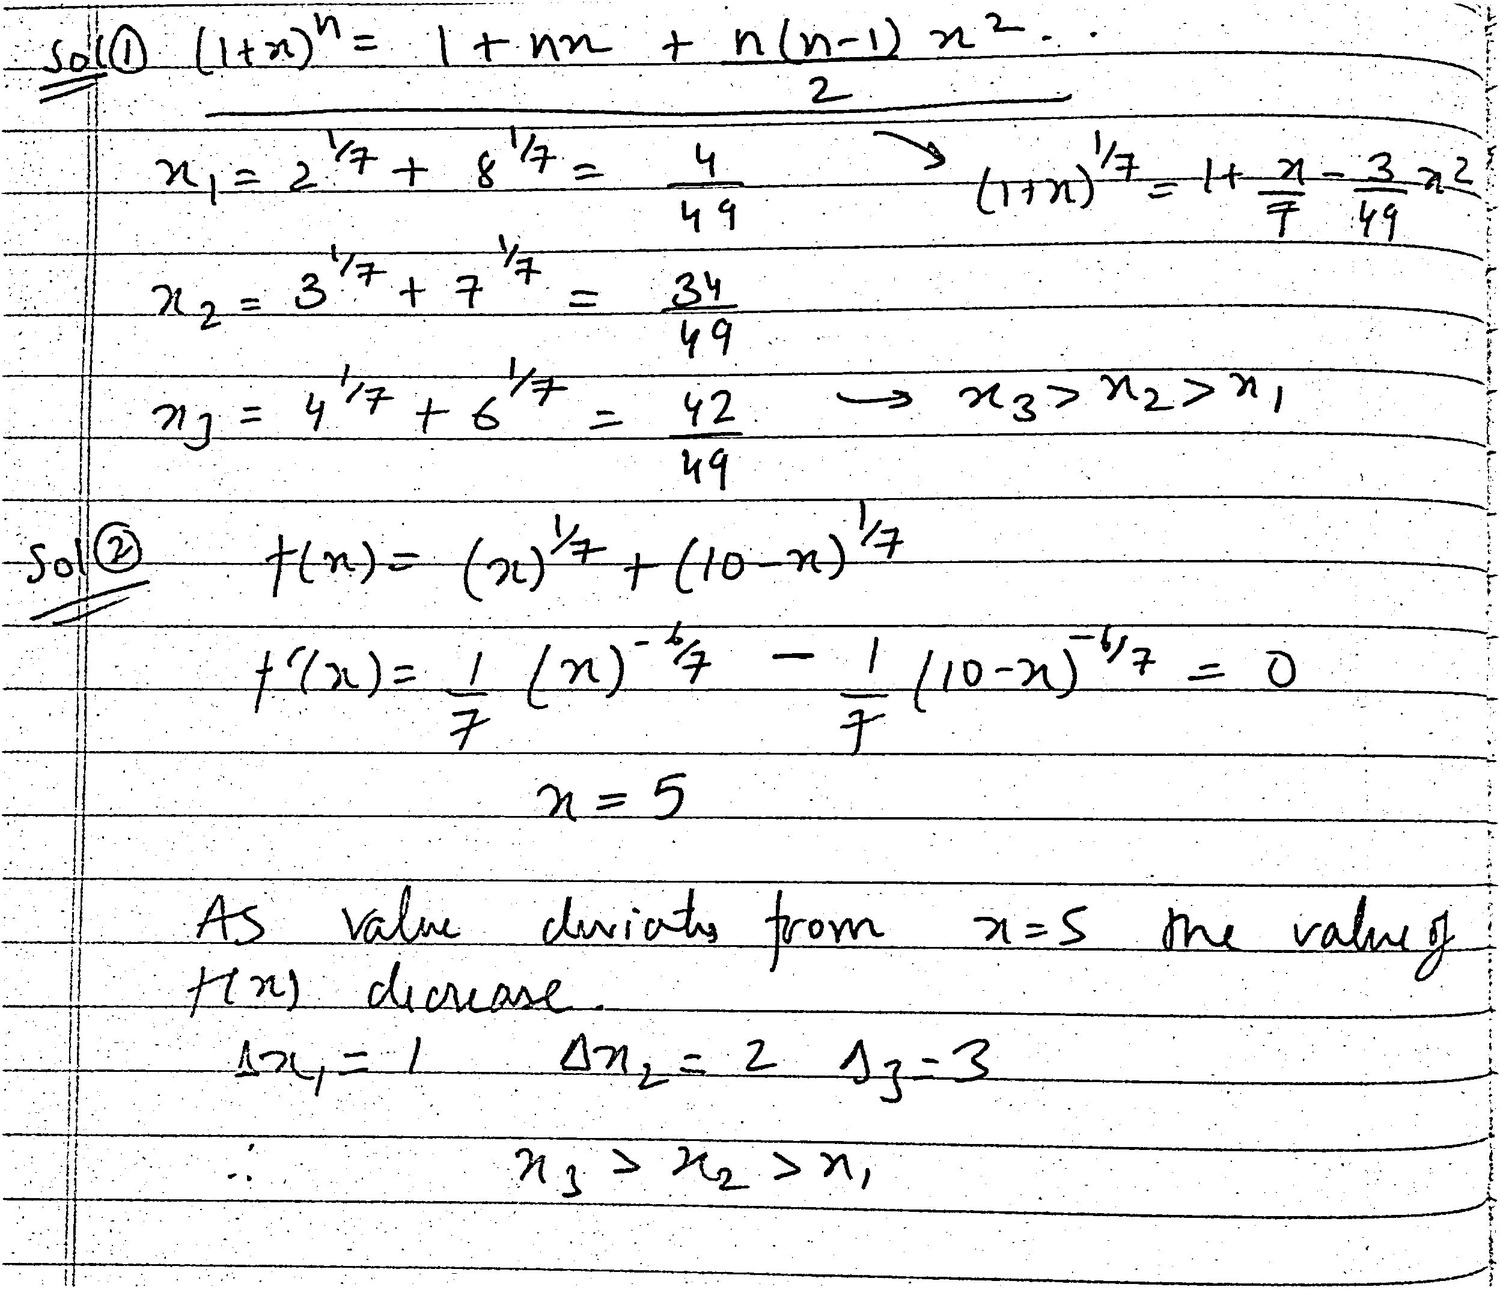 Sol ① (1+x)^n = 1 + nx + n(n-1)/2 x^2 . .
x_1 = 2^{1/7} + 8^{1/7} = 4/49 → (1+x)^{1/7} = 1 + x/7 - 3/49 x^2
x_2 = 3^{1/7} + 7^{1/7} = 34/49
x_3 = 4^{1/7} + 6^{1/7} = 42/49 → x_3 > x_2 > x_1
Sol ② f(x) = (x)^{1/7} + (10-x)^{1/7}
f'(x) = 1/7 (x)^{-6/7} - 1/7 (10-x)^{-6/7} = 0
x = 5
As value deviates from x=5 the value of
f(x) decrease.
Δx_1 = 1 Δx_2 = 2 Δ_3 = 3
∴ x_3 > x_2 > x_1